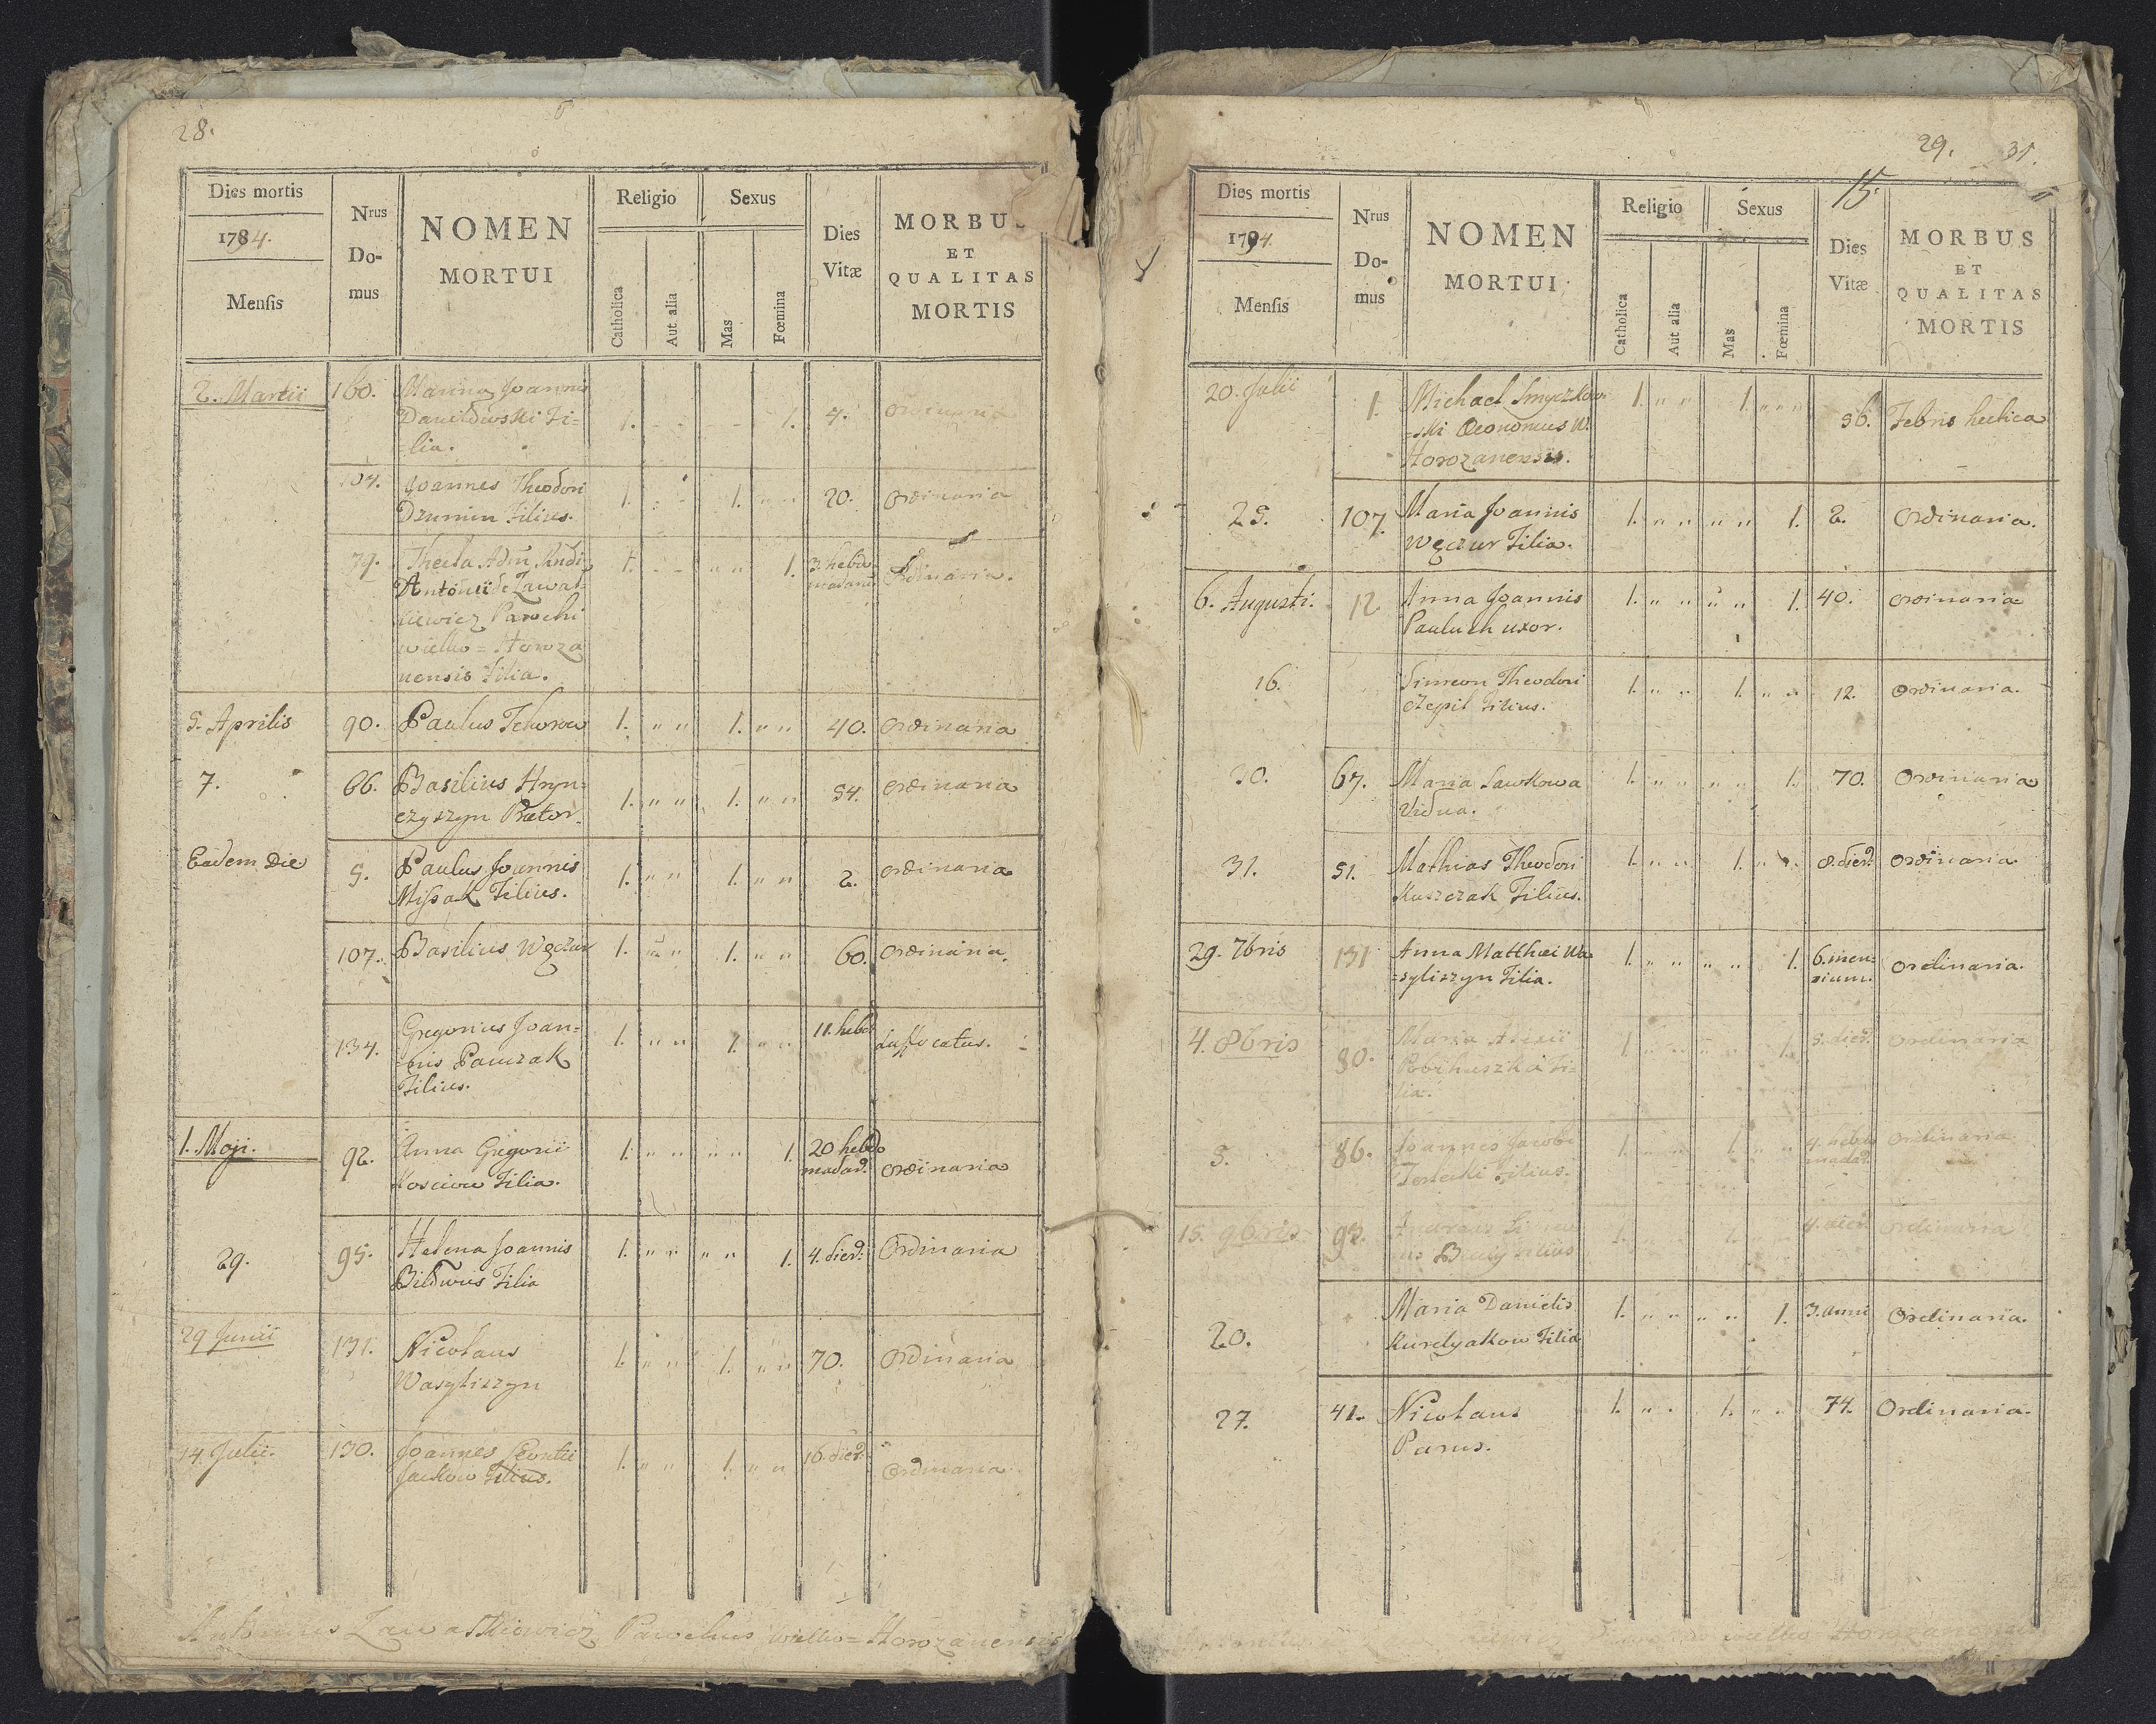 28.
Dies mortis
1784.
Mensis
Nrus
Do-
mus
NOMEN
MORTUI
Religio
Catholica
Aut alia
Sexus
Mas
Fœmina
Dies
Vitæ
MORBUS
ET
QUALITAS
MORTIS
2. Martii 160. Marina Joannis
Daniłowski Fi- 1. 1. 4. ordinaria
lia.
104. Joannes Theodori 1. 1. 20. ordinaria
Dzumin Filius.
79. Thecla Adm. Rndi 1. 1. 3. hebdo- Ordinaria.
Antonii de Zawał- madaru
kiewicz Parochi
wielko=Horoza
nensis Filia.
5. Aprilis 90. Paulus Tchorow 1. " " 1. " " 40. ordinaria
7. 66. Basilius Hryn= 1. " " 1. " " 54. ordinaria
czyszyn Prætor.
Eadem Die 5. Paulus Joannis 1. " " 1. " " 2. ordinaria
Missak Filius.
107. Basilius Węczur 1. " " 1. " " 60. ordinaria.
134. Gregorius Joan= 1. " " 1. " " 11. hebd. suffocatus.
=nis Pawczak
Filius.
1. Maji. 92. Anna Gregorii 1. " " " " 1. 20 hebdo
Kosciow Filia. madar. ordinaria
29. 95. Helena Joannis 1. " " " " 1. 4. dier. Ordinaria
Biłdwus Filia
29 Junii 131. Nicolaus 1. " " 1. " " 70. Ordinaria
Wasyliszyn
14. Julii. 130. Joannes Leontii 1. " " 1. " " 16. dier. Ordinaria
Jackow Filius.
Antonius Zawałkiewicz Parochus wielko=Horozanensis
29. 31.
15.
Dies mortis
1794.
Mensis
Nrus
Do-
mus
NOMEN
MORTUI
Religio
Catholica
Aut alia
Sexus
Mas
Fœmina
Dies
Vitæ
MORBUS
ET
QUALITAS
MORTIS
20. Julii 1. Michael Smyczkow 1. " " 1. " " 56. Febris hectica
=ski Œconomus W.
Horozanensis.
25. 107. Maria Joannis 1. " " " " 1. 2. Ordinaria.
Węczur Filia.
6. Augusti. 12. Anna Joannis 1. " " " " 1. 40. ordinaria
Pauluch uxor.
16. Simeon Theodori 1. " " 1. " " 12. Ordinaria.
Czepil Filius.
30. 67. Maria Sawkowa 1. " " " " 1. 70. Ordinaria
Vidua.
31. 51. Mathias Theodori 1. " " 1. " " 8. dier. ordinaria
Kuszczak Filius.
29. 7bris 131 Anna Matthæi Wa 1. " " " " 1. 6. men= ordinaria.
=syliszyn Filia. sium.
4. 8bris 80. Maria 1. " " " " 1. 5. dier. Ordinaria
Pobihuszka Fi-
lia.
5. 86. Joannes Jacobi 1. " " 1. " " 4. hebdo ordinaria
Filius. madar.
15. 9bris 1. " " 1. " " 4. dier. Ordinaria
Filius
20. Maria Danielis 1. " " " " 1. 3. anni Ordinaria.
Kurdyakow Filia
27. 41. Nicolaus 1. " " 1. " " 74. Ordinaria.
Parus.
Antonius wielko Horozanensis